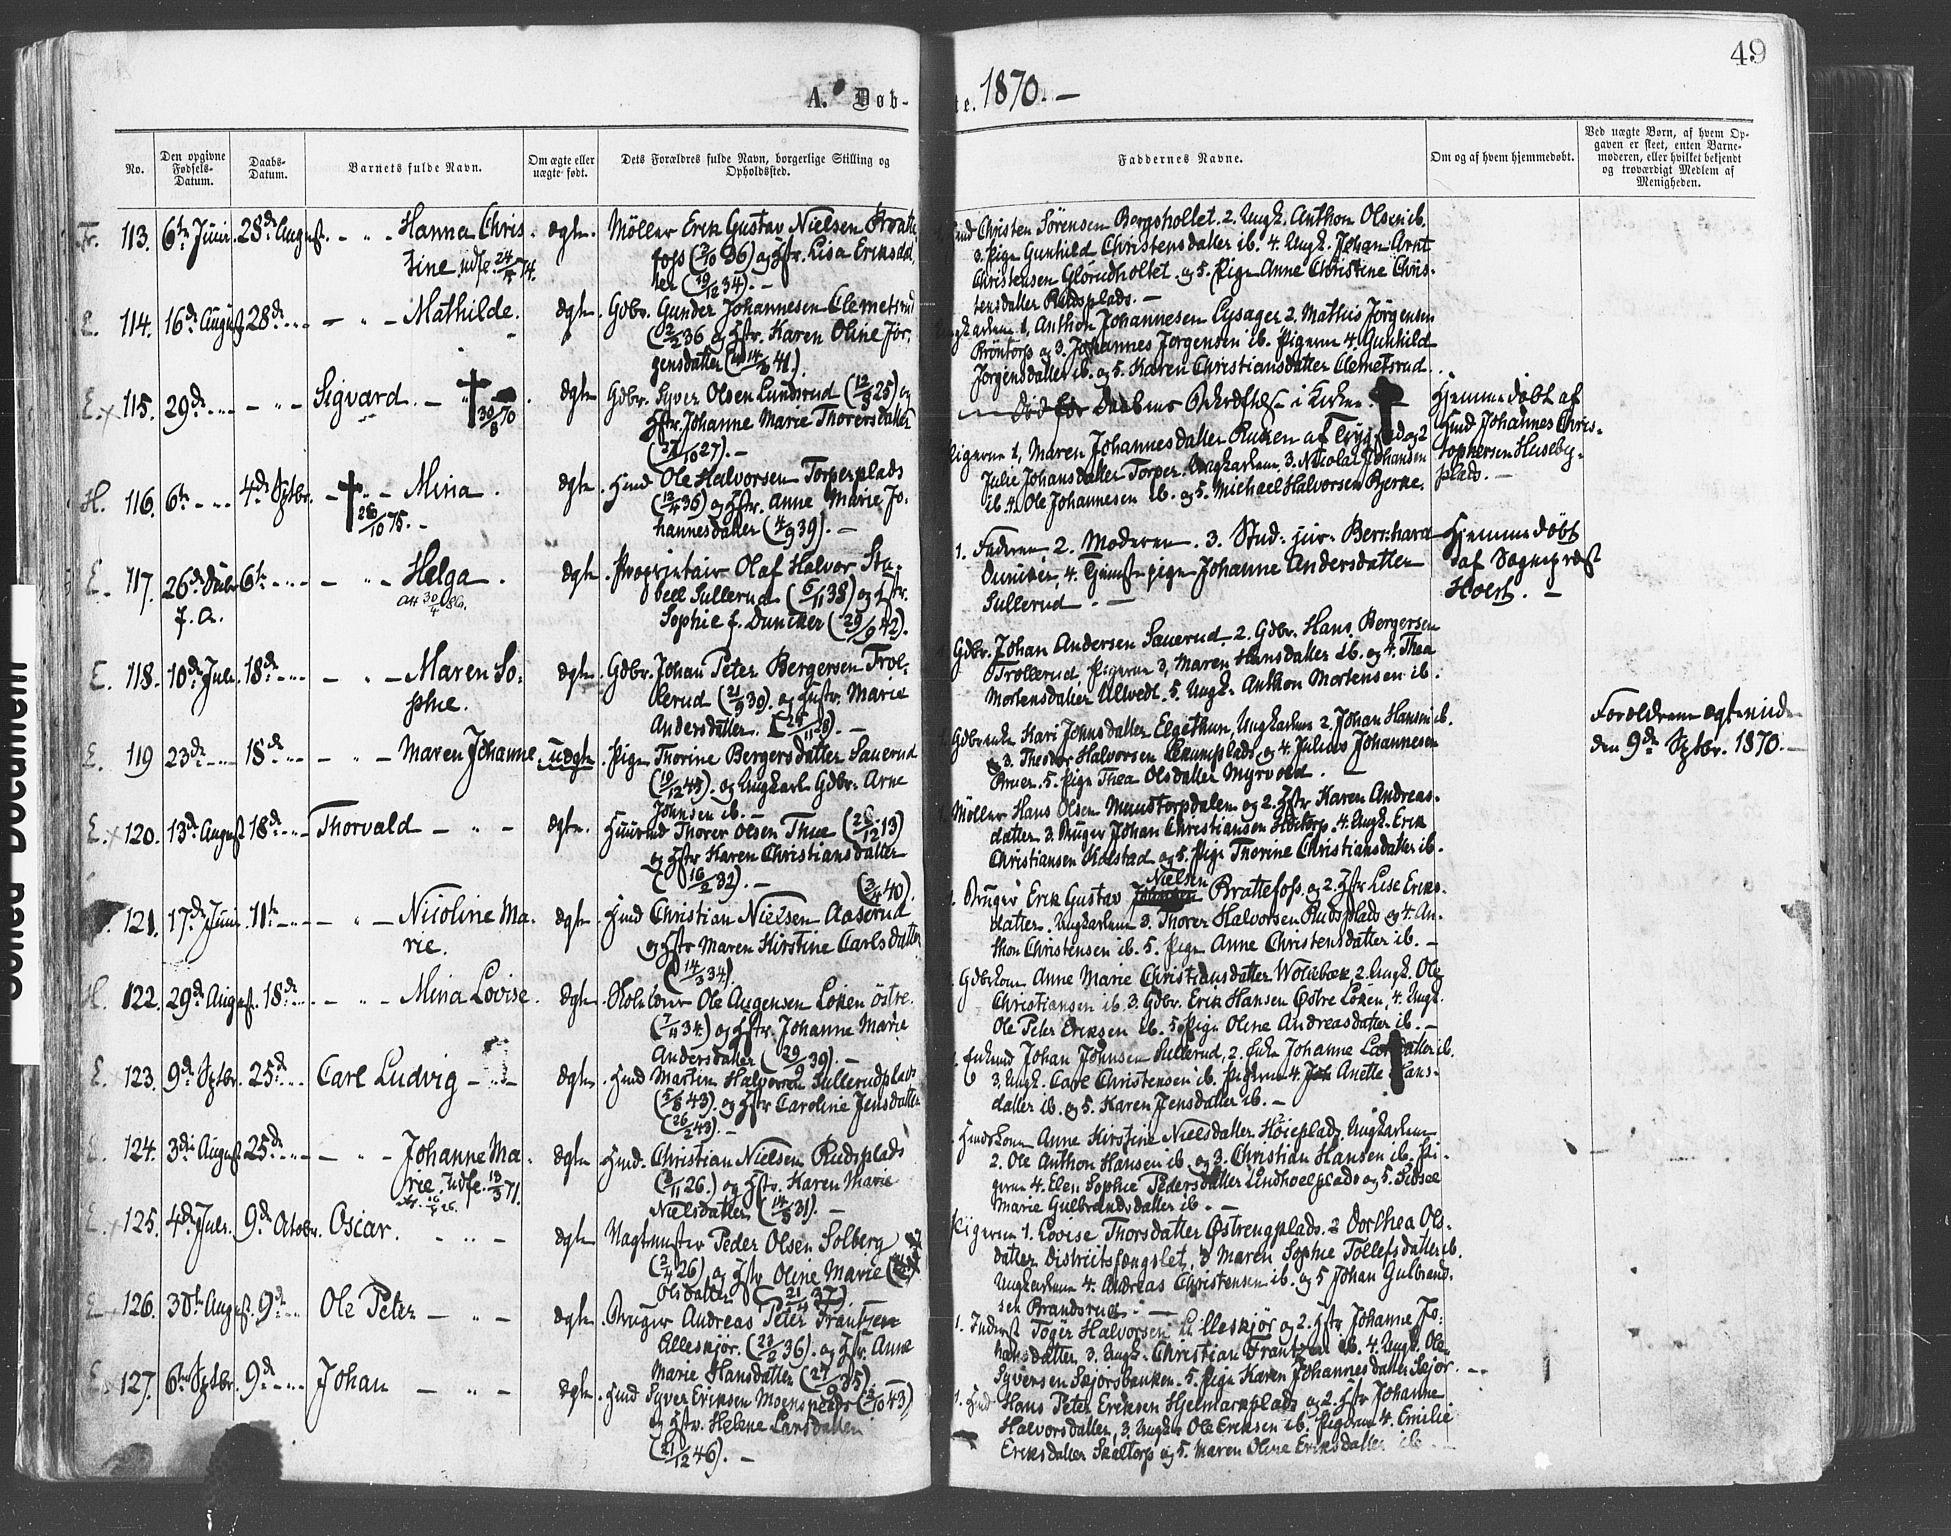 49
A. Døb-
te. 1870. —
No.
Den opgivne
Fødsels-
Datum.
Daabs-
Datum.
Barnets fulde Navn.
Om ægte eller
uægte født.
Dets Forældres fulde Navn, borgerlige Stilling og
Opholdssted.
Faddernes Navne.
Om og af hvem hjemmedøbt.
Ved uægte Børn, af hvem Op-
gaven er skeet, enten Barne-
moderen, eller hvilket bekjendt
og troværdigt Medlem af
Menigheden.
113. 6te Juni. 28de August. — " — Hanna Chris
tine. udfl. 24/4 74.
ægte. Møller Erik Gustav Nielsen Bratte
foss (2/10 36) og Hstr. Lisa Eriksdat
ter (19/12 34). —
Christen Sörensen Bergsholtet. 2. Ungk. Anthon Olsen ib.
3. Pige Gunhild Christensdatter ib. 4. Ungk. Johan Arnt
Christensen Glörudholtet og 5. Pige Anne Christine Chris-
tensdatter Rudsplads. —
E. 114. 16de August 28de — " — Mathilde.
ægte. Gdbr. Gunder Johannesen Clemetsrud
36 og Hstr. Karen Oline Jör-
gensdatter 41).
1, Anthon Johannesen Lysager 2. Mathis Jörgensen
Bröntorp og 3. Johannes Jörgensen ib. Pigerne 4. Gunhild
Jörgensdatter ib. og 5. Karen Christiansdatter Clemetsrud.
E. × 115. 29de — " — Sigvard. — 30/8 70
ægte Gdbr. Syver Olsen Lundsrud 25) og
Hstr. Johanne Marie Thorersdatter
27). —
Död før Daabens Bekræftelse i Kirken.
Hjemmedöbt af
Hmd Johannes Chris-
tophersen Huseby-
plads. —
H. 116. 6te — " — 4de Sptbr. — Mina.
26/10 75. —
ægte. Hmd Ole Halvorsen Torperplads
36) og Hstr. Anne Marie Jo-
hannesdatter (4/9 39). —
Pigerne 1, Maren Johannesdatter Ruken af og 2
Julie Johansdatter Torper. Ungkarlene 3. Nicolai Johansen
ib. 4. Ole Johannesen ib. og 5. Michael Halvorsen Bjerke.
E. 117. 26de 6te — " — Helga.
f. A.
30/4 86.
ægte. Proprietair Olaf Halvor Sta-
bell Sullerud (5/11 38) og Hstr.
Sophie f. Duncker (29/9 42).
1. Faderen 2. Moderen. 3. Stud. jur. Bernhard
Duncker, 4. Tjenstepige Johanne Andersdatter
Sullerud. —
Hjemmedöbt
af Sognepræst
Holst. —
E. 118. 10de Juli. 18de — " — Maren So-
phie.
ægte. Gdbr. Johan Peter Bergersen Trol-
lerud (21/9 39). og Hustr. Marie
Andersdatter. —
Gdbr. Johan Andersen Sauerud 2. Gdbr. Hans Bergersen
Trollerud. Pigerne 3, Maren Hansdatter ib. og 4. Thea
Mortensdatter Ullvedt. 5. Ungk. Anthon Mortensen ib.
E. 119 23de — " — 18de — " — Maren Johanne.
uægte Pige Thorine Bergersdatter Sauerud
(19/12 43). og Ungkarl Gdbr. Arne
Johnsen ib. —
Gdbrenke Kari Johnsdatter Elgethun, Ungkarlene 2. Johan Hansen ib.
3. Theodor Halvorsen og 4. Julius Johannesen
5. Pige Thea Olsdatter Myrvold. —
Forældrene ægteviede
den 9de Sptbr. 1870. —
E. × 120. 13de August 18de Thorvald — " —
ægte. Thorer Olsen Thue (26/12 13)
og Hstr Karen Christiansdatter
(16/2 32). —
1. Møller Hans Olsen Mundtorpdalen og 2. Hstr Karen Andreas-
datter. 3. Bruger Johan Christiansen 4. Ungk. Erik
Christiansen Kolstad og 5. Pige Thorine Christiansdatter ib.
121. 17de Juni 11te — " — Nicoline Ma-
rie.
(3/4 40)
ægte. Hmd Christian Nielsen Aaserud
og Hstr Maren Kirstine Carlsdatter
(14/3 34)
Nielsen
1. Bruger Erik Gustav Brattefoss, og 2. Hstr Lise Eriks-
datter. Ungkarlene 3. Thorer Halvorsen Rudsplads og 4. An-
thon Christensen ib. 5. Pige Anne Christensdatter ib. —
H. 122. 29de August. 18de — " — Mina Lovise.
ægte Ole Augensen Löken östre.
34) og Hstr. Johanne Marie
Andersdatter (29/9 39). —
Gdbrkone Anne Marie Christiansdatter Wolebæk 2. Ungk. Ole
Christiansen ib. 3. Gdbr. Erik Hansen Østre Löken, 4. Ungk.
Ole Peter Eriksen ib. 5. Pige Oline Andreasdatter ib. —
E. 123. 9de Sptbr. 25de — " — Carl Ludvig — " —
ægte. Hmd Martin Halvorsen Sullerudplads
(5/8 43). og Hstr Caroline Jensdatter
(26/2 43). —
Enkemd Johan Johnsen Sullerud, 2. Enke Johanne Larsdatter ib.
3. Ungk. Carl Christensen ib. Pigerne 4. Anette Hans-
datter ib. og 5. Karen Jensdatter ib. —
E. 124. 3de August 25de — " — Johanne Ma-
rie. udfl. 13/3 71.
ægte Hmd. Christian Nielsen Rudsplads
26.) og Hstr. Karen Marie
Nielsdatter 31). —
Hmdskone Anne Kirstine Nielsdatter Höieplads. Ungkarlene
2. Ole Anthon Hansen ib. og 3. Christian Hansen ib. Pi-
gerne 4. Elen Sophie Pedersdatter Lindhoelplads og 5. Sidsel
Marie Gulbrandsdatter ib. —
E. × 125. 4de Juli. 9de Octobr. Oscar. — " —
ægte Vagtmester Peder Olsen Solberg
26) og Hstr Oline Marie
Olsdatter (21/4 37)
Pigerne 1. Lovise Thorsdatter Østrengplads. 2 Dorthea Ols-
datter Districtsfængslet, 3 Maren Sophie Tollefsdatter ib.
Ungkarlene 4. Andreas Christensen ib. og 5 Johan Gulbrand-
sen Brandsrud. —
E. 126. 30te August. 9de — " — Ole Peter — " —
ægte. Bruger Andreas Peter Frantzen
Lilleskjör. (23/2 36). og Hstr. Anne
Marie Hansdatter 35).
1. Inderst Töger Halvorsen Lilleskjör og 2. Hstr Johanne Jo-
hansdatter. 3. Ungk. Christian Frantzen ib. 4. Ungk. Ole
Syversen Skjörsbakken. 5. Pige Karen Johannesdatter Skjör. —
E. 127. 6te Sptbr. 9de — " — Johan — " —
ægte. Hmd Syver Eriksen Moensplads 43)
og Hstr. Helene Larsdatter
(21/12 46). —
1. Hmd Hans Peter Eriksen Hjelmarkplads, og 2. Hstr Johanne
Halvorsdatter, 3. Ungk Ole Eriksen ib. Pigerne 4. Emilie
Eriksdatter Skaltorp og 5. Maren Oline Eriksdatter ib. —